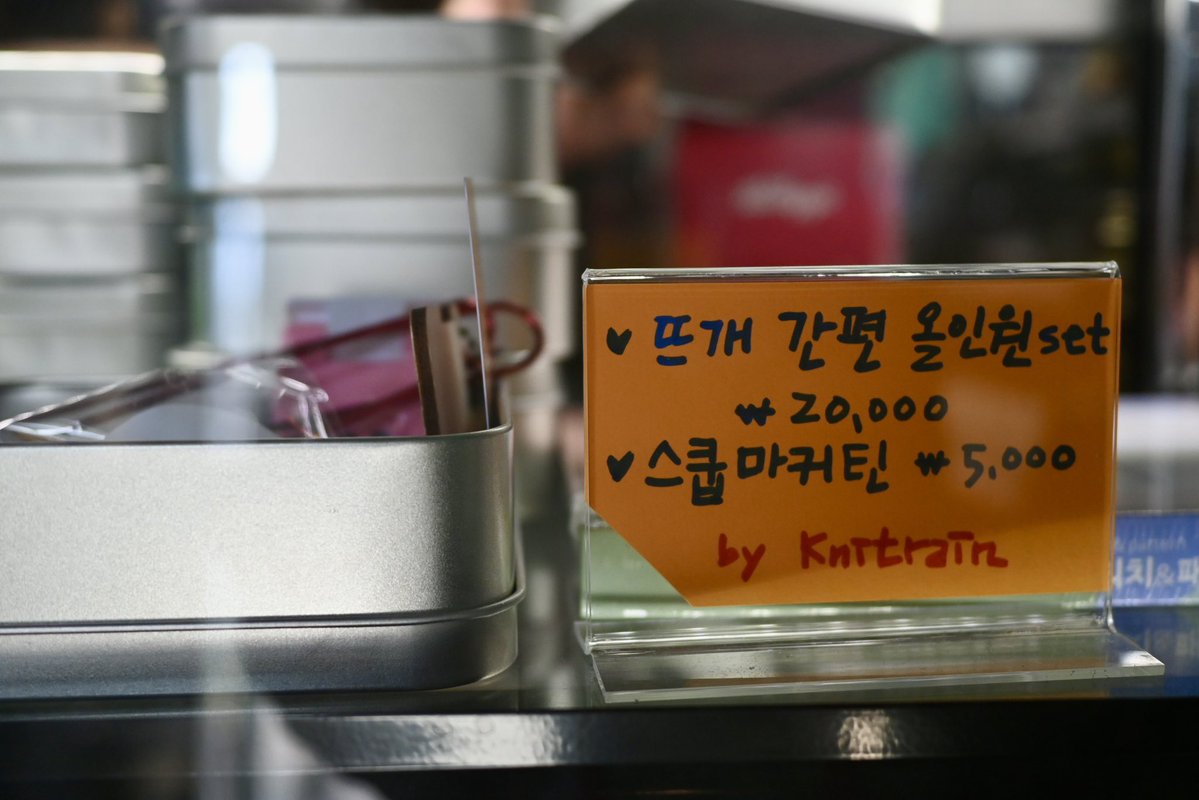 ♥ 뜨개 간편 올인원set
₩20,000
♥ 스쿱마커틴 ₩5,000
by Knitrain
치&파